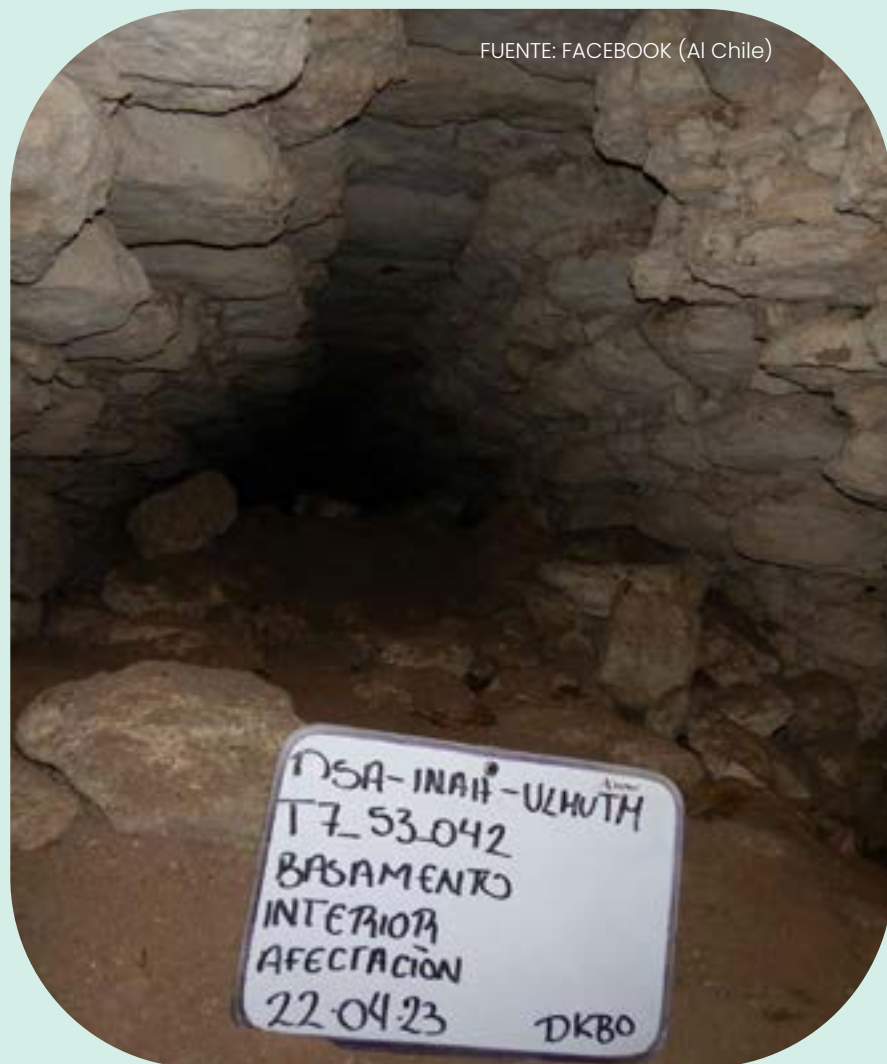 FUENTE: FACEBOOK (Al Chile)
DSA-INAH-ULMUTM
T7_53_042
BASAMENTO
INTERIOR
AFECTACIÓN
22-04-23 DKBO